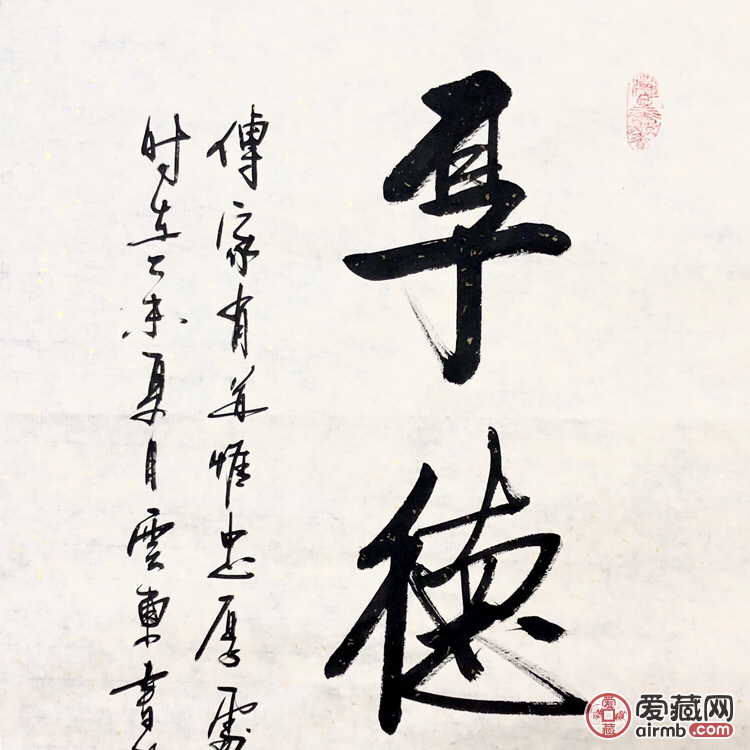 厚德
傳家有道惟忠厚處
时在乙未夏月雲東書
爱藏网
airmb.com